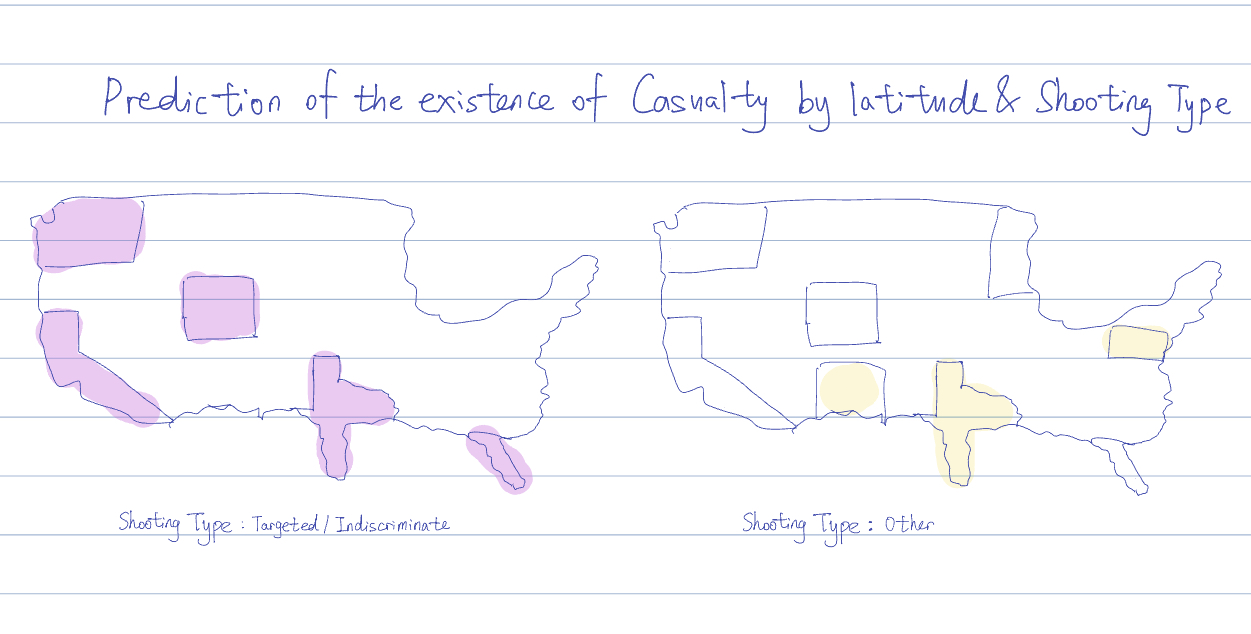 Prediction of the existence of Casualty by latitude & Shooting Type
Shooting Type : Targeted / Indiscriminate
Shooting Type : Other